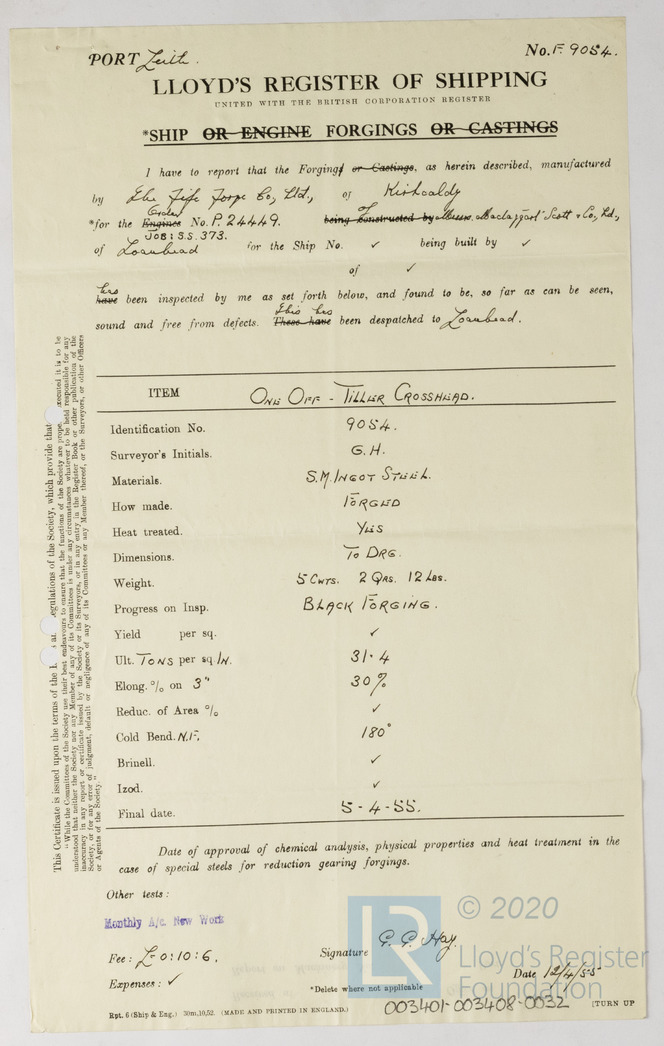 PORT Leith.
No. F. 9054.
LLOYD'S REGISTER OF SHIPPING
UNITED WITH THE BRITISH CORPORATION REGISTER
*SHIP OR ENGINE FORGINGS OR CASTINGS
I have to report that the Forgings or Castings, as herein described, manufactured
by The Fife Forge Co, Ltd., of Kirkcaldy
Order of
*for the Engines No. P. 24449. being constructed by Messrs. Mactaggart Scott & Co, Ltd,
JOB: S.S. 373.
of Loanhead for the Ship No. ✓ being built by ✓
of ✓
has
have been inspected by me as set forth below, and found to be, so far as can be seen,
This has
sound and free from defects. These have been despatched to Loanhead.
ITEM ONE OFF - TILLER CROSSHEAD.
Identification No. 9054.
Surveyor's Initials. G.H.
Materials. S.M. INGOT STEEL.
How made. FORGED
Heat treated. YES
Dimensions. TO DRG.
Weight. 5 CWTS. 2 QRS. 12 LBS.
Progress on Insp. BLACK FORGING.
Yield per sq. ✓
Ult. TONS per sq. IN. 31.4
Elong. % on 3" 30%
Reduc. of Area % ✓
Cold Bend. N.F. 180°
Brinell. ✓
Izod. ✓
Final date. 5-4-55.
Date of approval of chemical analysis, physical properties and heat treatment in the
case of special steels for reduction gearing forgings.
Other tests:
Monthly A/c. New Work
Fee: £-0:10:6,
Signature G. Hay.
Expenses: ✓
Date 12/4/55
*Delete where not applicable
003401-003408-0032
Rpt. 6 (Ship & Eng.) 30m,10,52. (MADE AND PRINTED IN ENGLAND.)
[TURN UP
This Certificate is issued upon the terms of the Regulations of the Society, which provide that
"While the Committees of the Society use their best endeavours to ensure that the functions of the Society are executed it is to be
understood that neither the Society nor any Member of any of its Committees is under any circumstances whatever to be held responsible for any
inaccuracy in any report or certificate issued by the Society or its Surveyors, or in any entry in the Register Book or other publication of the
Society, or for any error of judgment, default or negligence of any of its Committees or any Member thereof, or the Surveyors, or other Officers
or Agents of the Society."
LR
© 2020
Lloyd's Register
Foundation